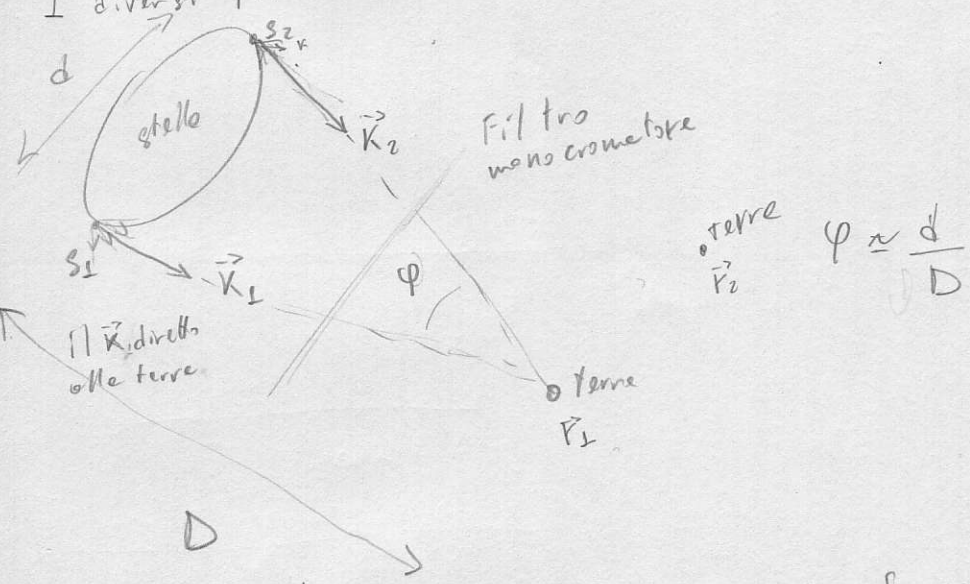 I diversi
d
S2
stella
K2
Filtro
monocromatore
S1
K1
φ
terre
r2
φ ≃ d/D
Il K diretto
alla terra
terra
r1
D